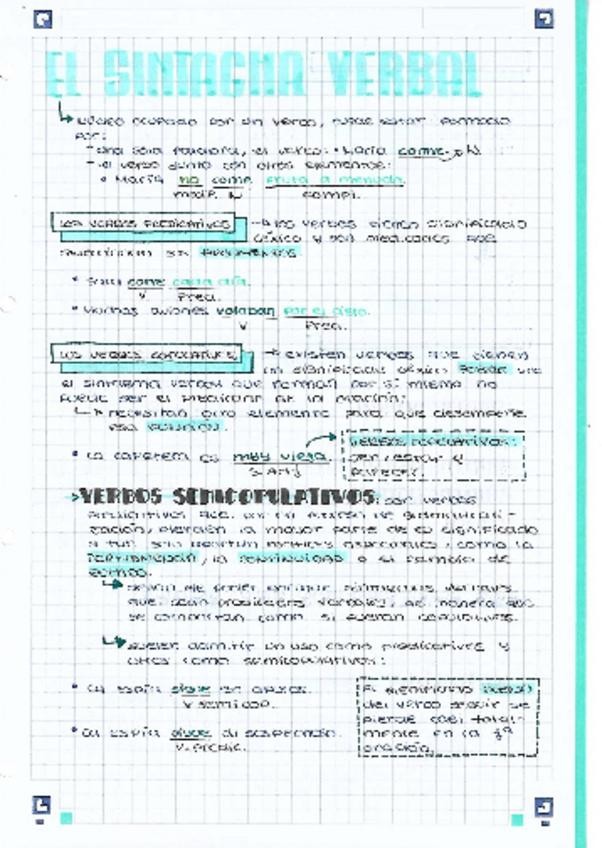 EL SINTAGMA VERBAL
núcleo ocupado por un verbo, puede estar formado
por:
una sola palabra, el verbo: • María come → N.
el verbo junto con otros elementos:
• María no come fruta a menudo.
modif. N compl.
LOS VERBOS PREDICATIVOS → los verbos tienen significado
léxico y son predicados que
sus argumentos.
corre cada día.
V Pred.
• Muchos aviones volaban por el cielo.
V Pred.
LOS VERBOS COPULATIVOS → existen verbos que tienen
un significado léxico
el sintagma verbal que forman por sí mismo no
puede ser el predicado de la oración:
↳ necesitan otro elemento para que desempeñe
esa función.
• La carretera es muy vieja.
S. Adj
verbos copulativos:
ser, estar y
parecer.
→ VERBOS SEMICOPULATIVOS: son verbos
predicativos que, por un proceso de gramaticali-
zación, pierden la mayor parte de su significado
y tan solo aportan matices aspectuales, como la
, la continuidad o el cambio de
estado.
que sean predicados verbales, de manera que
se comportan como si fueran copulativos.
↳ suelen admitir un uso como predicativos y
otros como semicopulativos:
• La espía sigue
V semicop.
• La espía sigue al sospechoso.
V. predic.
El significado
del verbo seguir se
pierde casi total-
mente en la 1ª
oración.